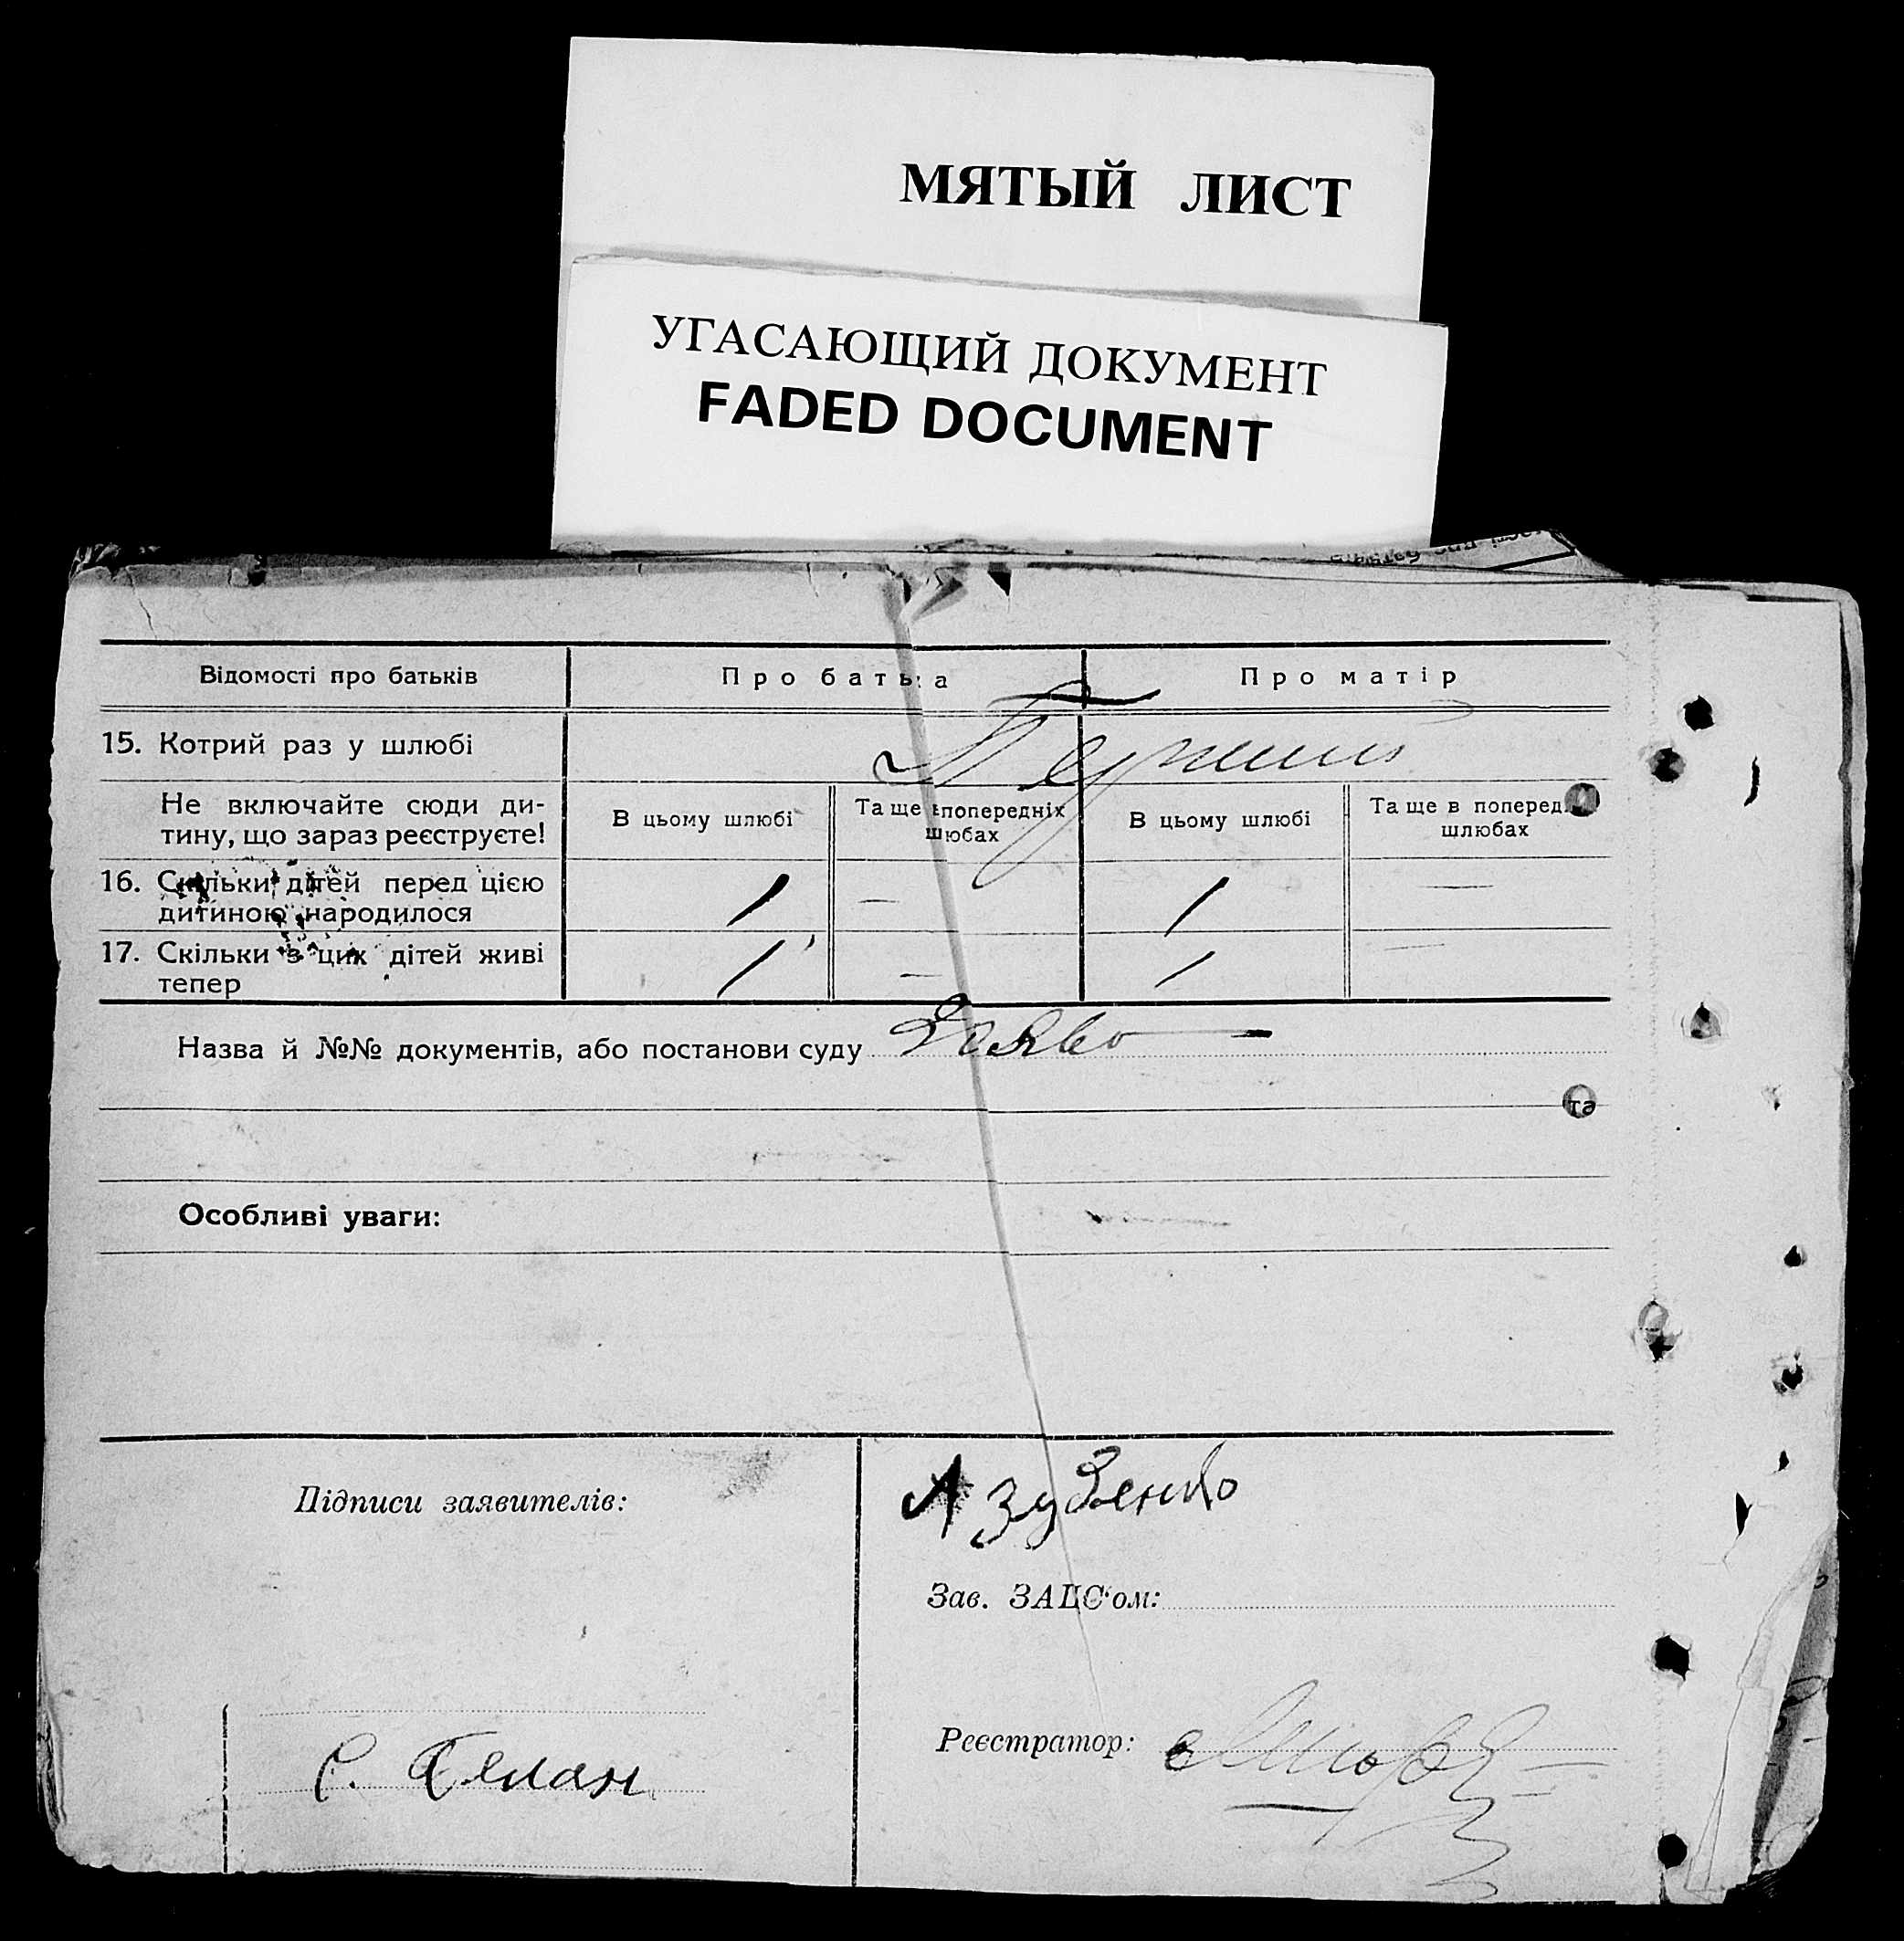 МЯТЫЙ ЛИСТ
УГАСАЮЩИЙ ДОКУМЕНТ
FADED DOCUMENT
Відомості про батьків
Про батька
Про матір
15. Котрий раз у шлюбі
Не включайте сюди ди-
тину, що зараз реєструєте!
В цьому шлюбі
Та ще в попередніх
шлюбах
В цьому шлюбі
Та ще в попередніх
шлюбах
16. Скільки дітей перед цією
дитиною народилося
1 — 1 —
17. Скільки з цих дітей живі
тепер
1 — 1 —
Назва й №№ документів, або постанови суду
та
Особливі уваги:
Підписи заявителів:
А Зубенко
Зав. ЗАЦС'ом:
Реєстратор: